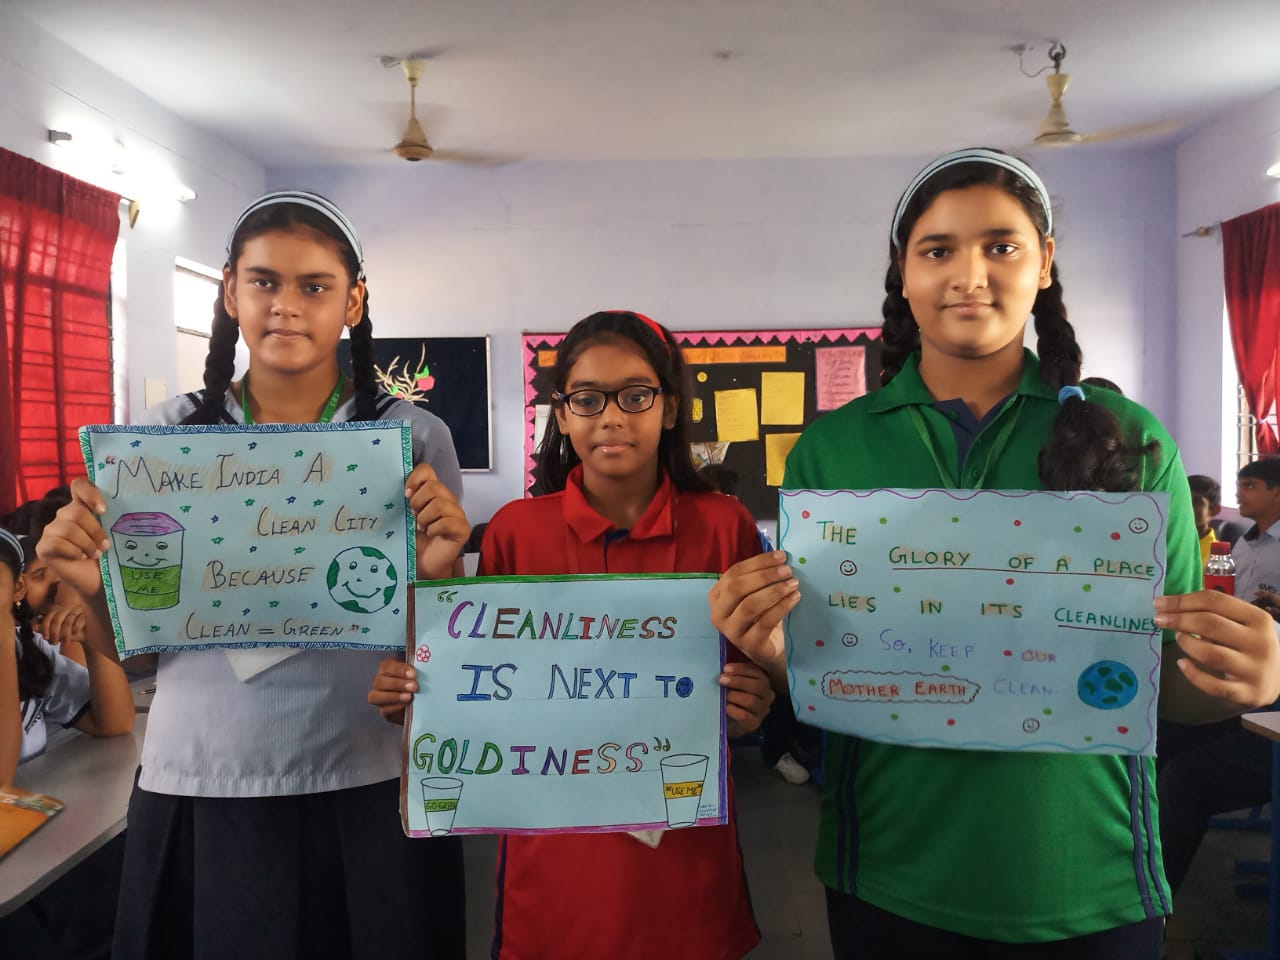 "MAKE INDIA A
CLEAN CITY
BECAUSE
CLEAN = GREEN"
USE
ME
"CLEANLINESS
IS NEXT TO
GOLDINESS"
GO GREEN
"USE ME"
THE
GLORY OF A PLACE
LIES IN ITS CLEANLINES
SO, KEEP OUR
MOTHER EARTH CLEAN.